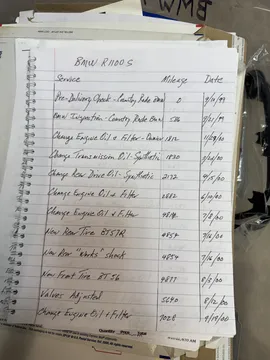 BMW R1100S
Service Mileage Date
Pre-Delivery Check - Country Rode BMW 0 9/11/99
BMW Inspection - Country Rode BMW 586
Change Engine Oil + Filter 1812
Change Transmission Oil - Synthetic 1830
Change Rear Drive Oil - Synthetic 2132 4/5/00
Change Engine Oil + Filter
Change Engine Oil + Filter 7/8/00
New Rear Tire BT57R 4854 7/6/00
New Rear "Works" shock 4854 7/6/00
New Front Tire BT56 4877 8/2/00
Valves Adjusted 5690 8/12/00
Change Engine Oil + Filter 7028 9/19/00